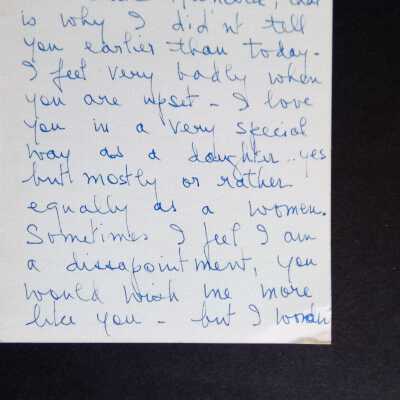 that
is why I did'nt tell
you earlier than today.
I feel very badly when
you are upset - I love
you in a very special
way as a daughter .. yes
but mostly or rather
equally as a women.
Sometimes I feel I am
a dissapointment, you
would wish me more
like you - but I